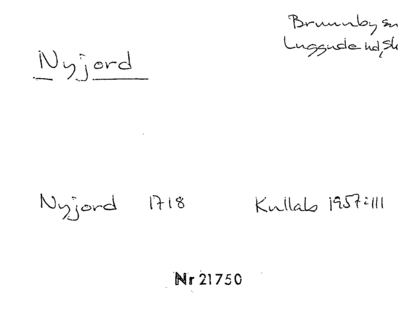 Brunnby sn
Luggude hd, Sk
Nyjord
Nyjord 1718 Kullab 1957:111
Nr 21750